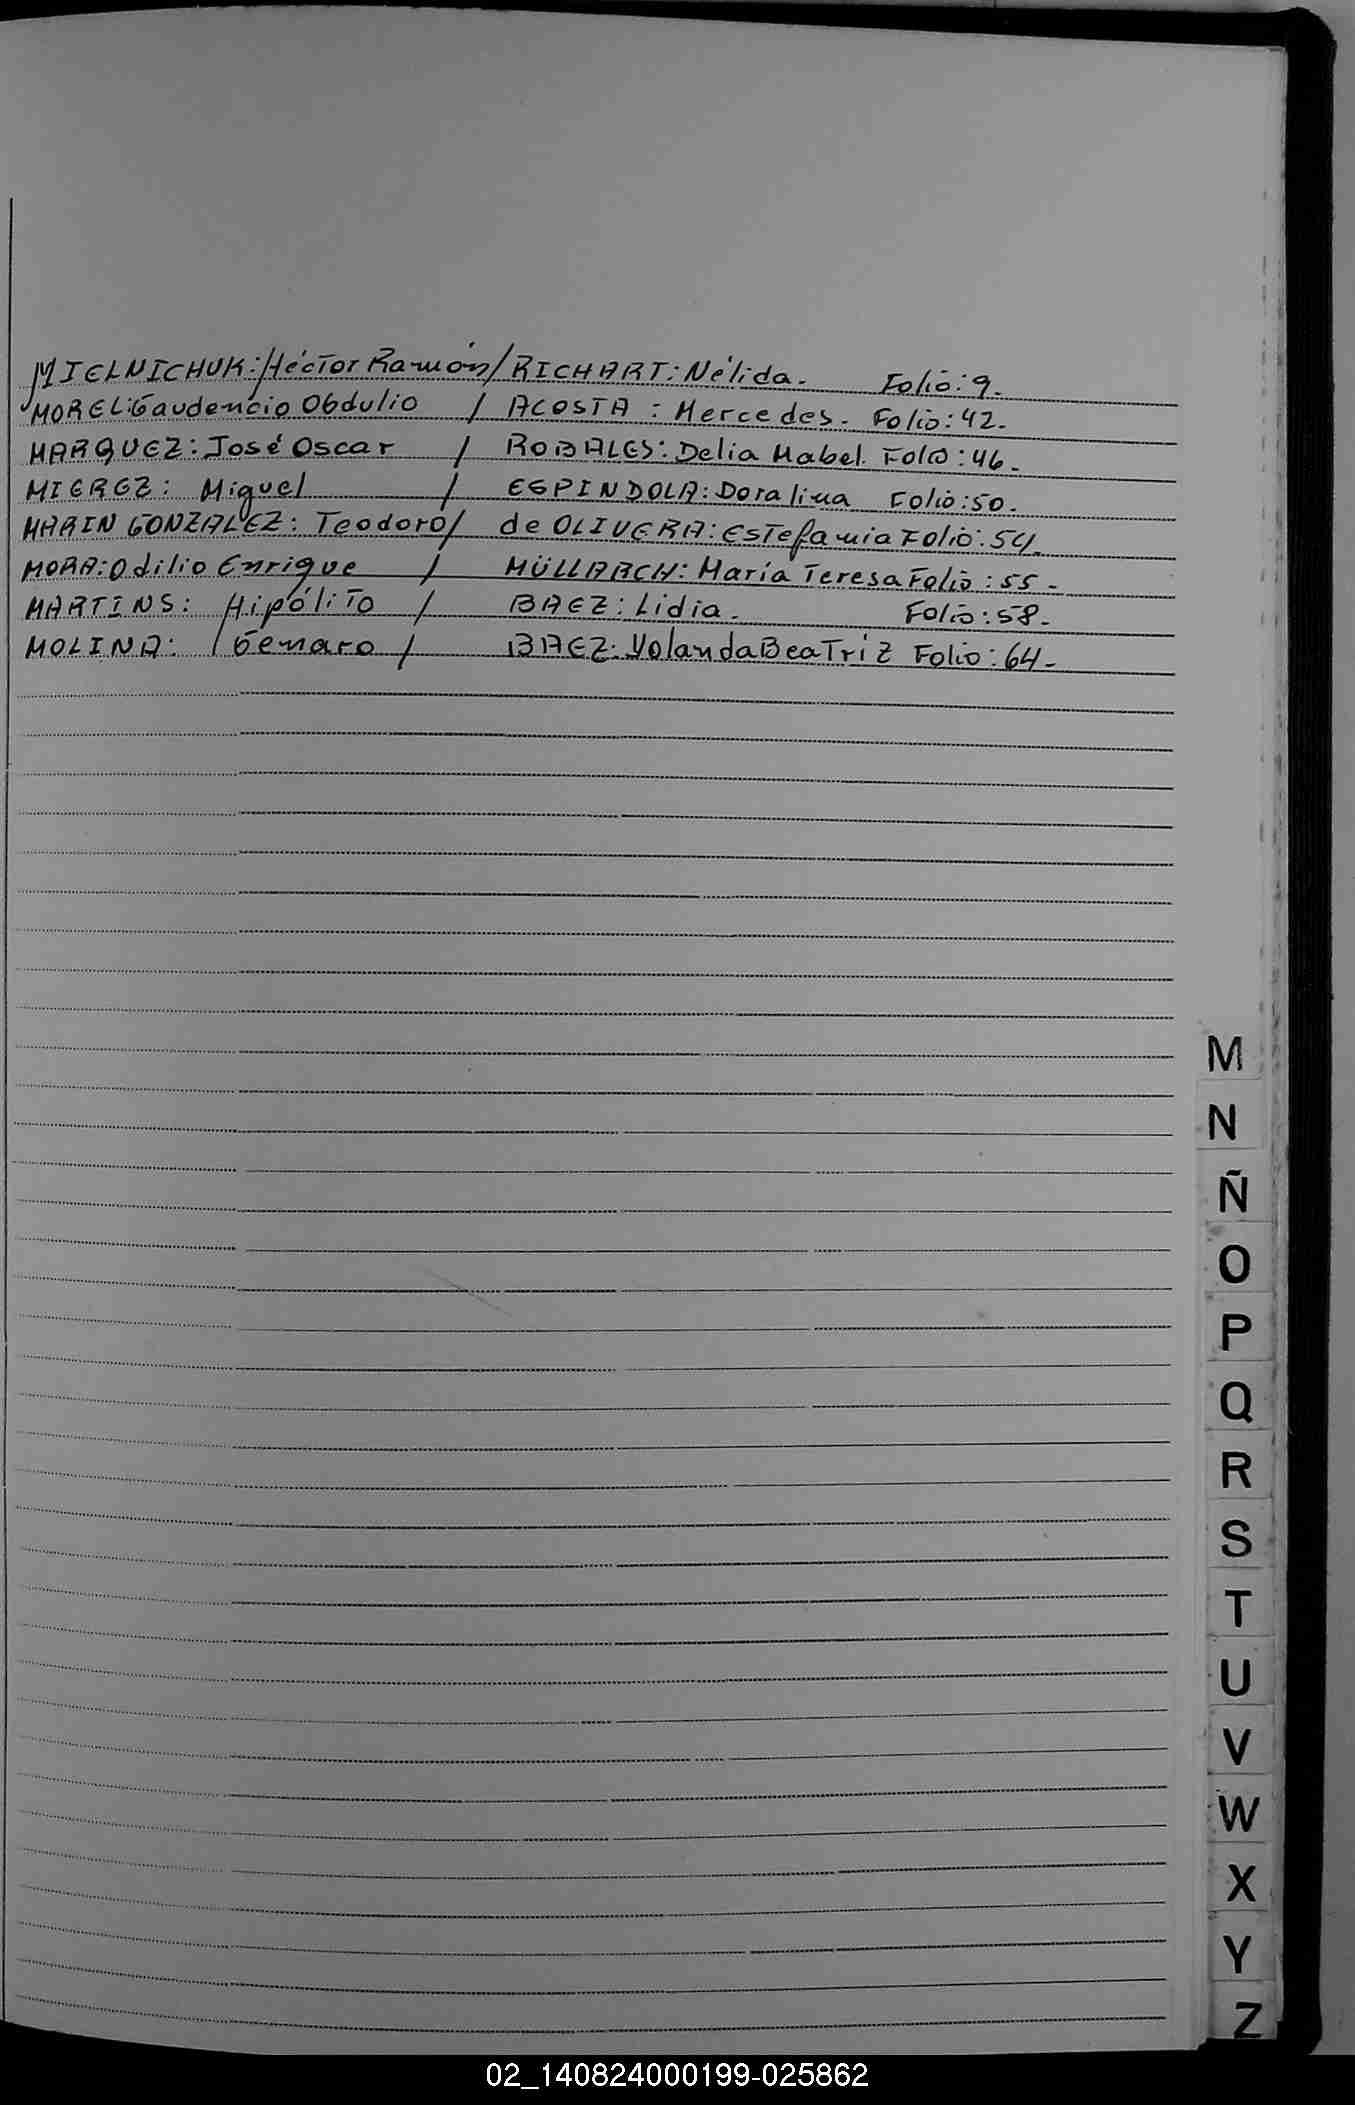 MIELNICHUK: Héctor Ramón / RICHART: Nélida. Folio: 9.
MOREL: Gaudencio Obdulio / ACOSTA: Mercedes. Folio: 42.
MARQUEZ: José Oscar / ROBALES: Delia Mabel. Folio: 46.
MIEREZ: Miguel / ESPINDOLA: Doralina Folio: 50.
MARIN GONZALEZ: Teodoro / de OLIVERA: Estefania Folio: 54.
MORA: Odilio Enrique / MÜLLARCH: María Teresa Folio: 55-
MARTINS: Hipólito / BAEZ: Lidia. Folio: 58.
MOLINA: Genaro / BAEZ: Yolanda Beatríz Folio: 64-
M
N
Ñ
O
P
Q
R
S
T
U
V
W
X
Y
Z
02_140824000199-025862